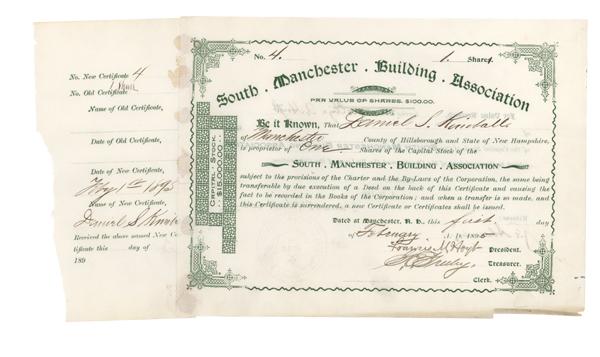 No. New Certificate 4
No. Old Certificate
Name of Old Certificate,
Date of Old Certificate,
Date of New Certificate,
Feby 1st 1895
Name of New Certificate,
Daniel S. Kimball
Received the above named New Cer-
tificate this day of
189
No. 4. 1. Shares.
South . Manchester . Building . Association
PAR VALUE OF SHARES, $100.00.
Be it Known, That Daniel S. Kimball
of Manchester County of Hillsborough and State of New Hampshire,
is proprietor of One Shares of the Capital Stock of the
South . Manchester . Building . Association
subject to the provisions of the Charter and the By-Laws of the Corporation, the same being
transferable by due execution of a Deed on the back of this Certificate and causing the
fact to be recorded in the Books of the Corporation; and when a transfer is so made, and
this Certificate is surrendered, a new Certificate or Certificates shall be issued.
Dated at Manchester, N. H., this first day
of February A. D. 1895
Hoyt President.
Treasurer.
Clerk.
Capital Stock
$15,000.00